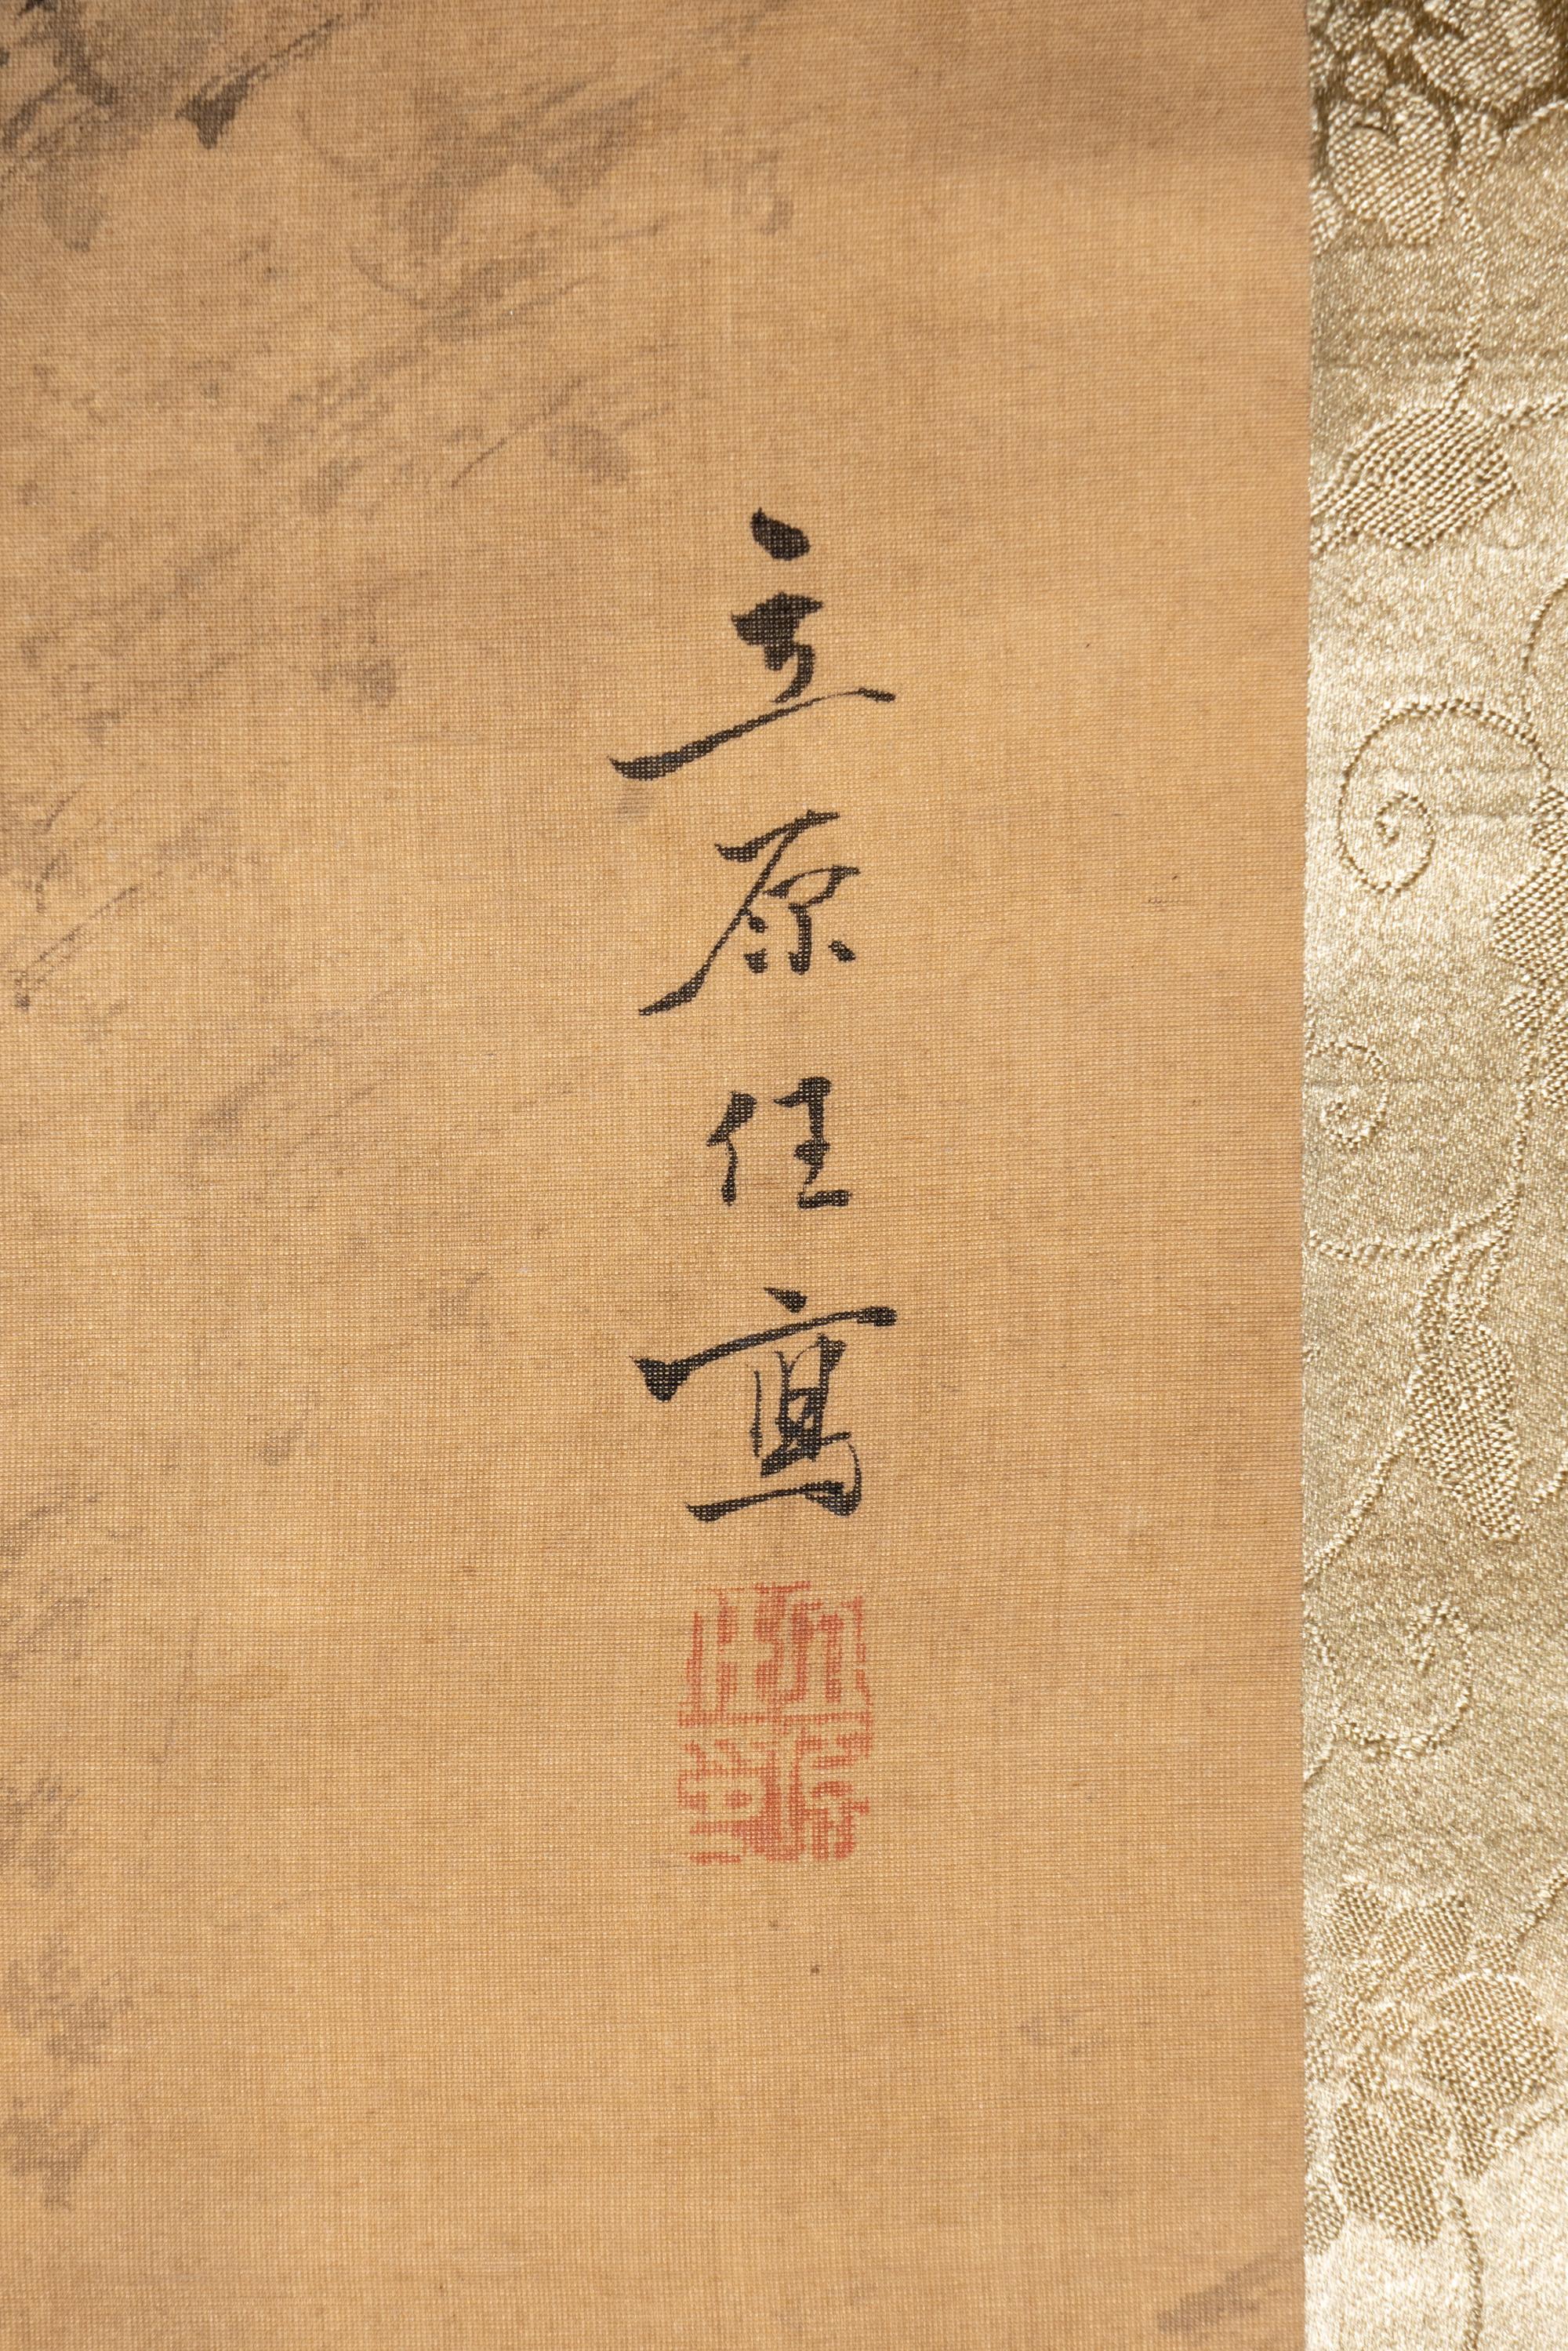 立原任寫